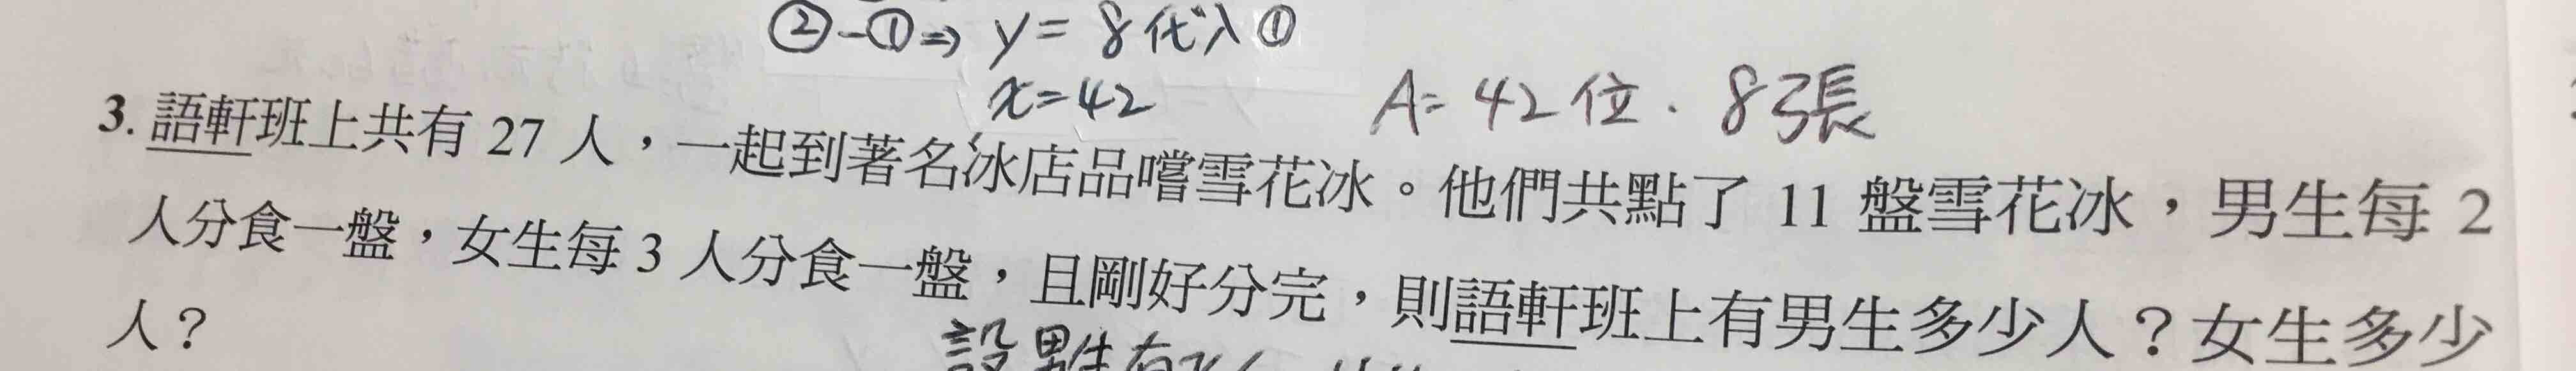 ②-①⇒ y=8代入①
x=42
A=42位．8張
3. 語軒班上共有 27 人，一起到著名冰店品嚐雪花冰。他們共點了 11 盤雪花冰，男生每 2
人分食一盤，女生每 3 人分食一盤，且剛好分完，則語軒班上有男生多少人？女生多少
人？
設男生有x